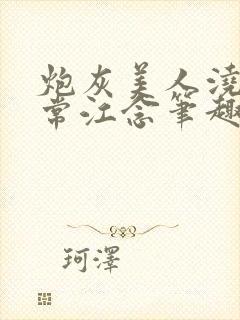 炮灰美人澆
常江念筆趣
珂澤